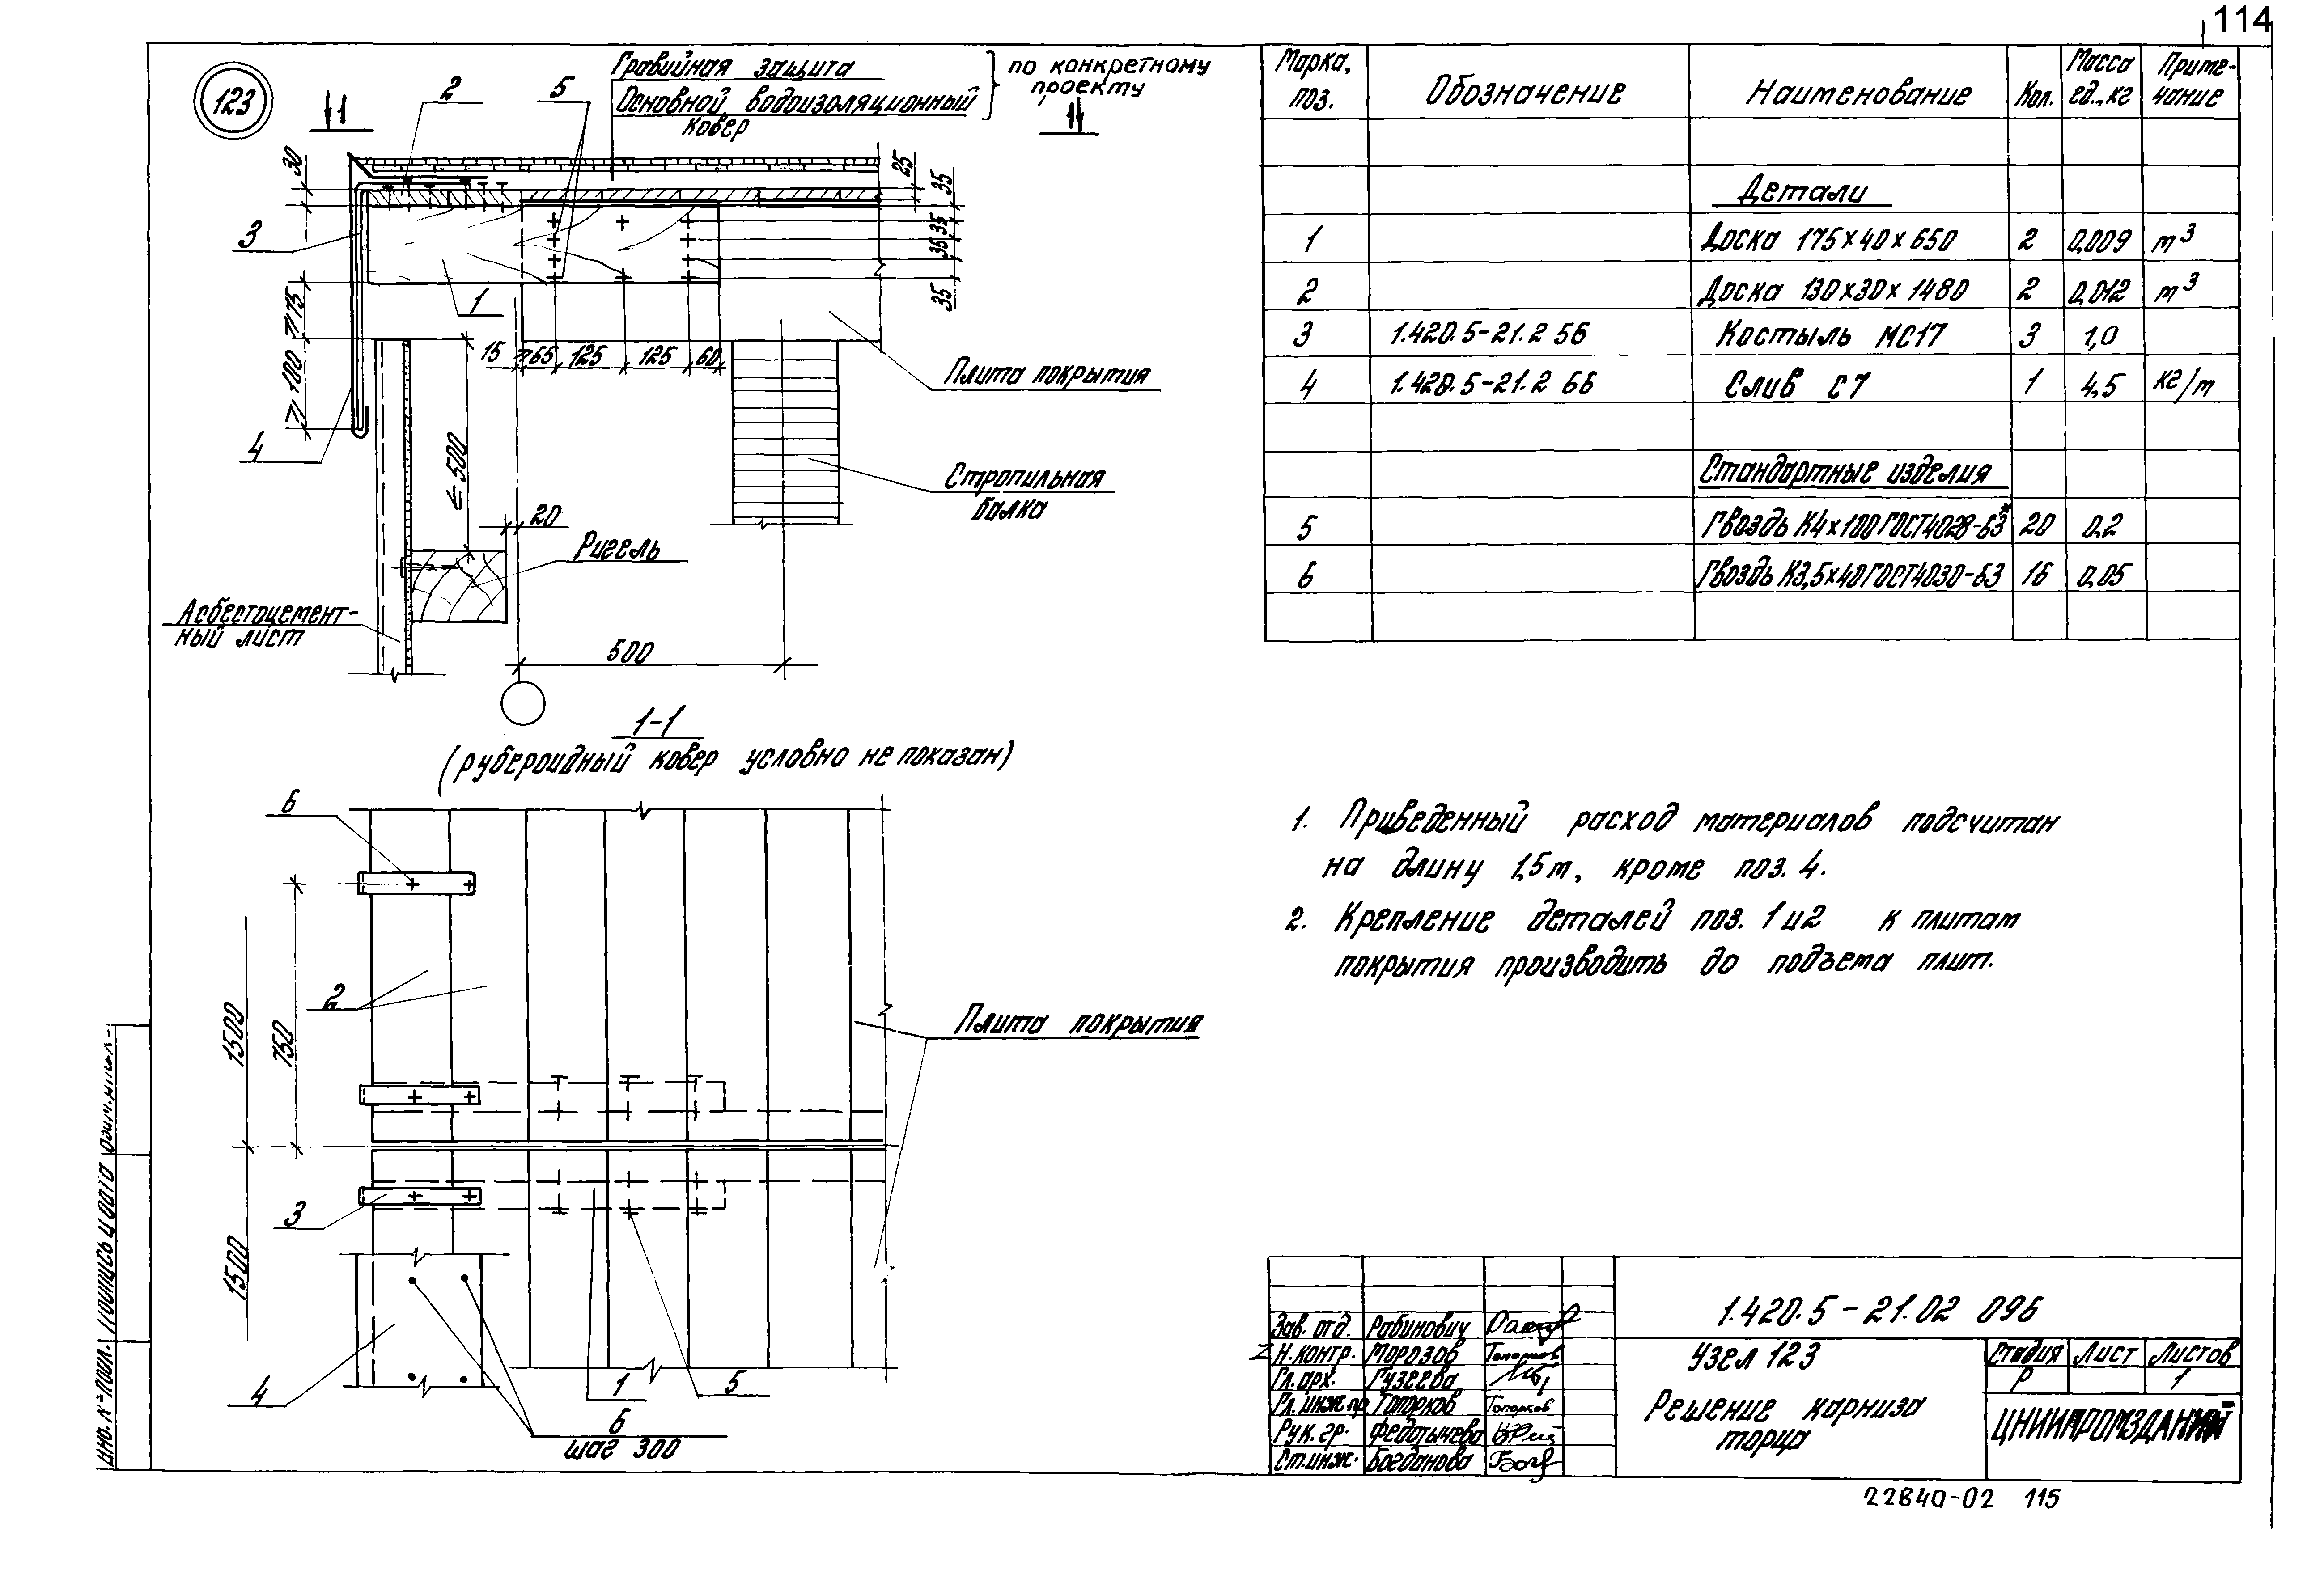 114
123
1
2
5
Гравийная защита
Основной водоизоляционный
ковер
по конкретному
проекту
1
30
25
35
35
35
35
2
3
1
≥75
≥100
15
≥65
125
125
60
Плита покрытия
4
≤500
20
Ригель
Стропильная
балка
Асбестоцемент-
ный лист
500
1-1
(рубероидный ковер условно не показан)
6
2
1500
750
Плита покрытия
3
1500
4
1
5
6
шаг 300
Марка, поз. Обозначение Наименование Кол. Масса ед., кг Приме-чание
Детали
1 Доска 175×40×650 2 0,009 м³
2 Доска 130×30×1480 2 0,012 м³
3 1.420.5-21.2 56 Костыль МС17 3 1,0
4 1.420.5-21.2 66 Слив С7 1 4,5 кг/м
Стандартные изделия
5 Гвоздь К4×100 ГОСТ4028-63* 20 0,2
6 Гвоздь К3,5×40 ГОСТ4030-63 16 0,05
1. Приведенный расход материалов подсчитан
на длину 1,5м, кроме поз. 4.
2. Крепление деталей поз. 1 и 2 к плитам
покрытия производить до подъема плит.
Зав. отд. Рабинович
Н.контр. Морозов Топорков
Гл.арх. Гузеева
Гл.инж.пр. Топорков Топорков
Рук.гр. Федотычева
Ст.инж. Богданова
1.420.5-21.02 096
Узел 123
Решение карниза
торца
Стадия Лист Листов
Р 1
ЦНИИПРОМЗДАНИЙ
Инв. № подл. Подпись и дата
22840-02 115